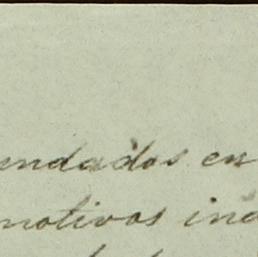 undados en
motivos ind